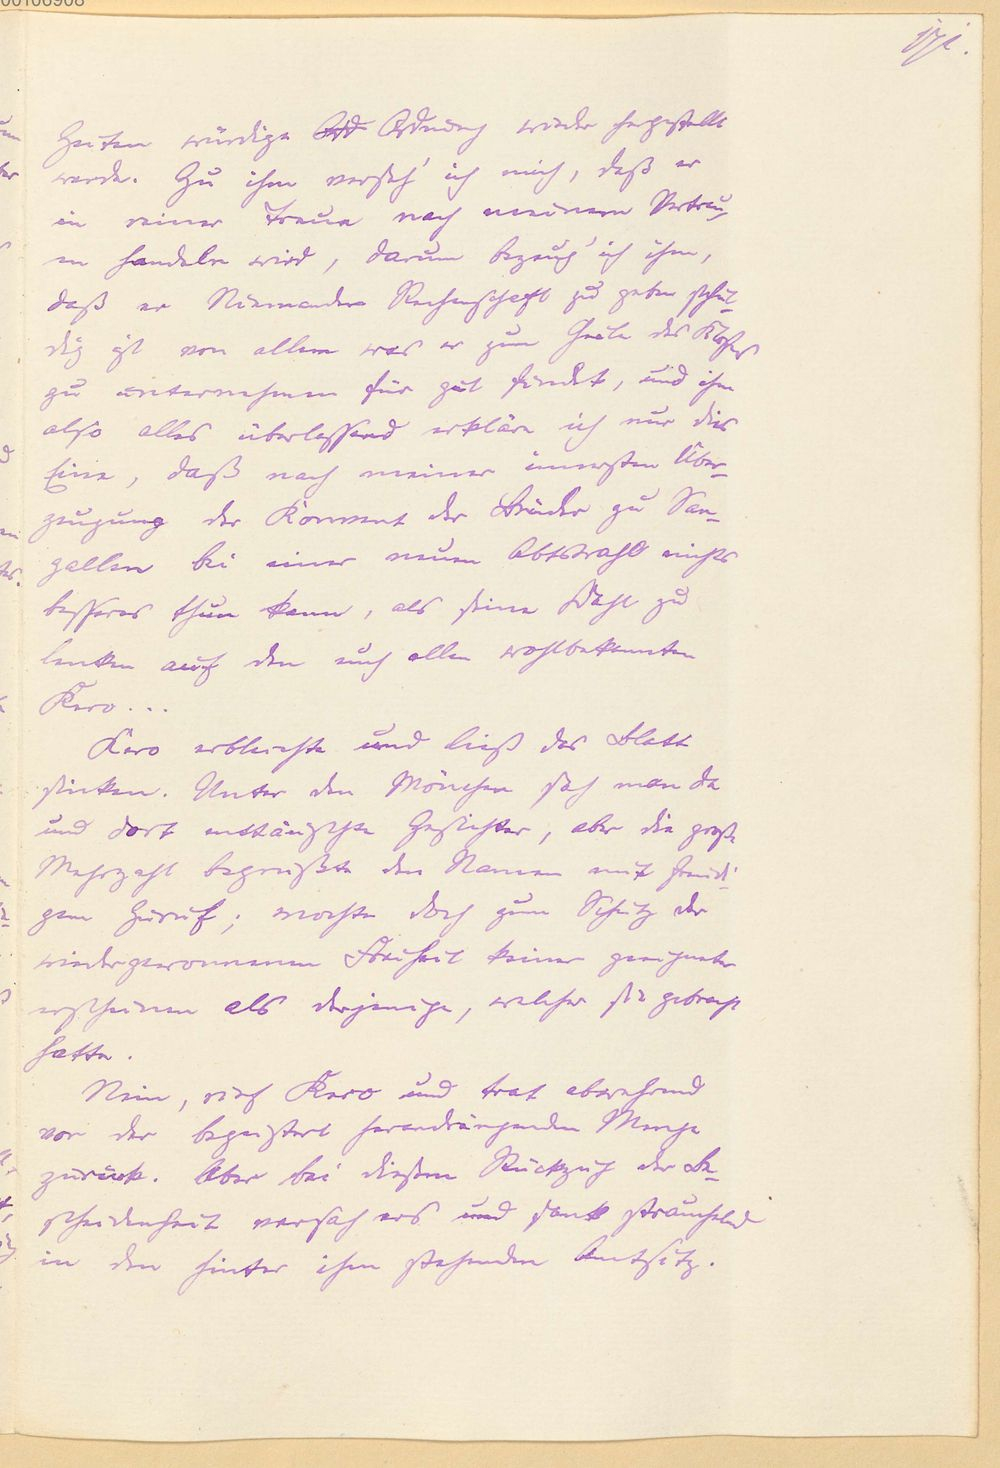 00106908
171.
Zeiten würdige Ord Ordnung wieder hergestellt
werde. Zu ihm verseh' ich mich, daß er
in reiner Treue nach meinem Vertrau-
en handeln wird, darum bezeug' ich ihm,
daß er Niemanden Rechenschaft zu geben schul-
dig ist von allem was er zum Heile des Klosters
zu unternehmen für gut findet, und ihm
also alles überlassend erkläre ich nur dies
Eine, daß nach meiner innersten Über-
zeugung der Konvent der Brüder zu San-
gallen bei einer neuen Abtswahl nichts
besseres thun kann, als seine Wahl zu
lenken auf den euch allen wohlbekannten
Kero...
Kero erbleichte und ließ das Blatt
sinken. Unter den Mönchen sah man da
und dort enttäuschte Gesichter, aber die große
Mehrzahl begrüßte den Namen mit freudi-
gem Zuruf; mochte doch zum Schutz der
wiedergewonnenen Freiheit keiner geeigneter
erscheinen als derjenige, welcher sie gebracht
hatte.
Nein, rief Kero und trat abwehrend
vor der begeistert herandrängenden Menge
zurück. Aber bei diesem Rückzug der Be-
scheidenheit versah ers und sank strauchelnd
in den hinter ihm stehenden Amtssitz.